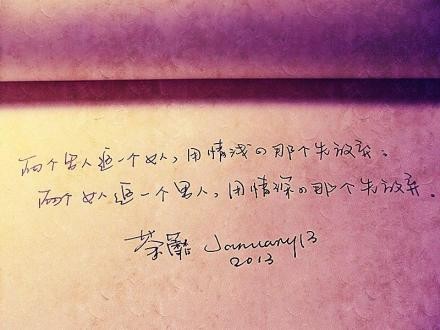 两个男人追一个女人，用情浅的那个先放弃。
两个女人追一个男人，用情深的那个先放弃.
荼蘼 January 13
2013